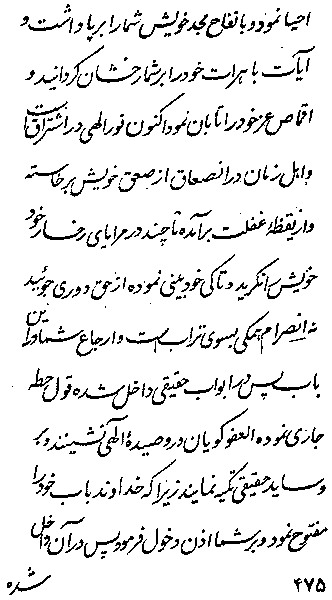 احیا نمود و با نفاح مجد خویش شما را بر پا داشت و
آیات باهرات خود را بر شما رخشان گردانید و
اقماص عز خود را تابان نمود اکنون نور الهی در اشتراق است
و اهل زمان در انصعاق از صعق خویش برخاسته
و از یقظهٔ غفلت برآمده تا چند در مرایای رخسار خود
خویش را نگرید و تا کی خود بینی نموده از حق دوری جوئید
نه انصرام همگی بسوی تراب است و ارجاع شما و این
باب پس در ابواب حقیقی داخل شده قول حطه
جاری نموده العفو گویان در وصیدهٔ الهی نشینند و بر
وساید حقیقی تکیه نمایند زیرا که خداوند باب خود را
مفتوح نمود و بر شما اذن دخول فرمود پس در آن داخل
۴۷۵ شده